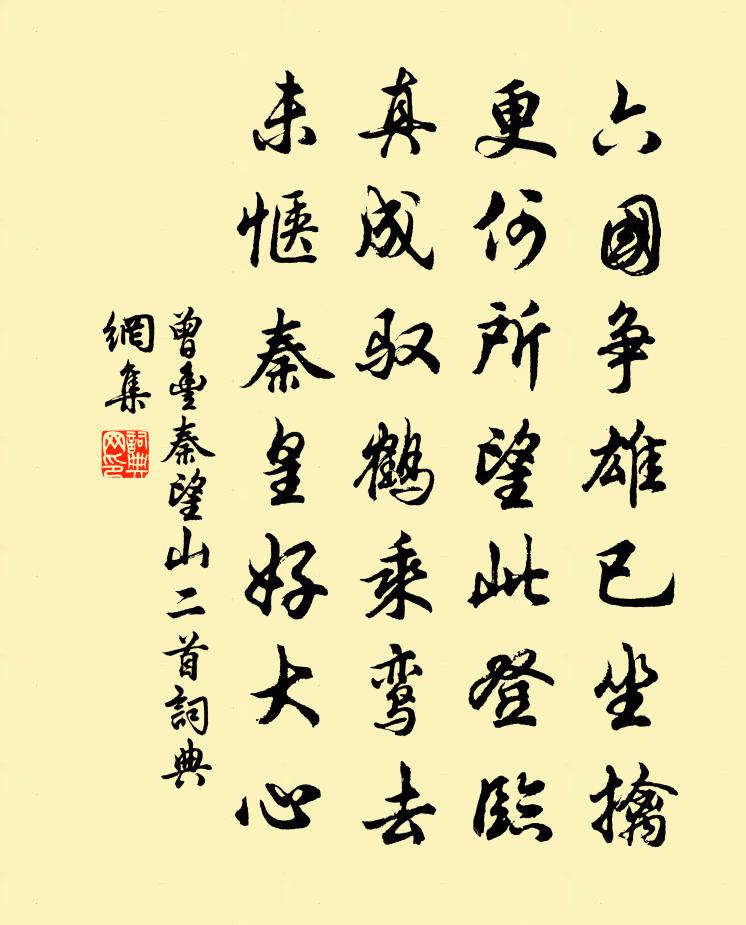 六國爭雄已坐擒
更何所望此登臨
真成馭鶴乘鸾去
未惬秦皇好大心
曾豊秦望山二首詞典
網集
詞典
网印